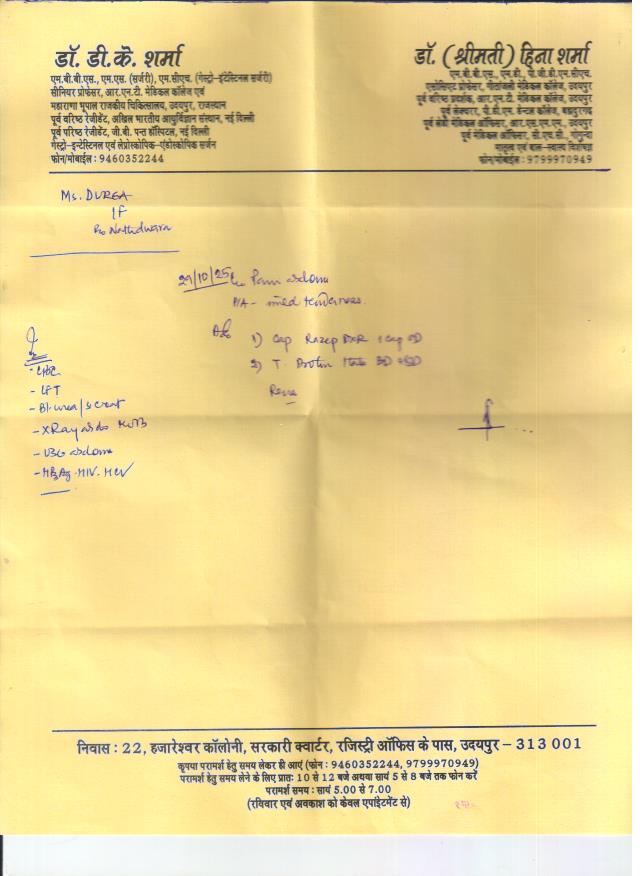 डॉ. डी.के. शर्मा
एम.बी.बी.एस., एम.एस. (सर्जरी), एम.सीएच. (गेस्ट्रो-इंटेस्टिनल सर्जरी)
सीनियर प्रोफेसर, आर.एन.टी. मेडिकल कॉलेज एवं
महाराणा भूपाल राजकीय चिकित्सालय, उदयपुर, राजस्थान
पूर्व वरिष्ठ रेजीडेंट, अखिल भारतीय आयुर्विज्ञान संस्थान, नई दिल्ली
पूर्व वरिष्ठ रेजीडेंट, जी.बी. पन्त हॉस्पिटल, नई दिल्ली
गेस्ट्रो-इन्टेस्टिनल एवं लेप्रोस्कोपिक-एंडोस्कोपिक सर्जन
फोन/मोबाईल : 9460352244
डॉ. (श्रीमती) हिना शर्मा
एम.बी.बी.एस., एम.डी., पी.जी.डी.एम.सीएच.
एसोसिएट प्रोफेसर, गीतांजली मेडिकल कॉलेज, उदयपुर
पूर्व वरिष्ठ प्रदर्शक, आर.एन.टी. मेडिकल कॉलेज, उदयपुर
पूर्व लेक्चरर, पी.डी.एम. डेन्टल कॉलेज, बहादुरगढ़
पूर्व मेडिकल ऑफिसर, आर.एस.एम.एम., उदयपुर
पूर्व मेडिकल ऑफिसर, सी.एच.सी., गोगुन्दा
मातृत्व एवं बाल-स्वास्थ्य विशेषज्ञ
फोन/मोबाईल : 9799970949
Ms. DURGA
F
R/o Nathdwara
29/10/25 Pain abdomen
P/A - mild tenderness.
Adv
1) Cap Razep DSR 1 cap OD
2) T. 1 tab BD
- CBC
- LFT
- Bl. urea / s creat
- X Ray abdo KUB
- USG abdomen
- HBsAg - HIV - HCV
निवास : 22, हजारेश्वर कॉलोनी, सरकारी क्वार्टर, रजिस्ट्री ऑफिस के पास, उदयपुर - 313 001
कृपया परामर्श हेतु समय लेकर ही आएं (फोन : 9460352244, 9799970949)
परामर्श हेतु समय लेने के लिए प्रातः 10 से 12 बजे अथवा सायं 5 से 8 बजे तक फोन करें
परामर्श समय : सायं 5.00 से 7.00
(रविवार एवं अवकाश को केवल एपांइटमेंट से)